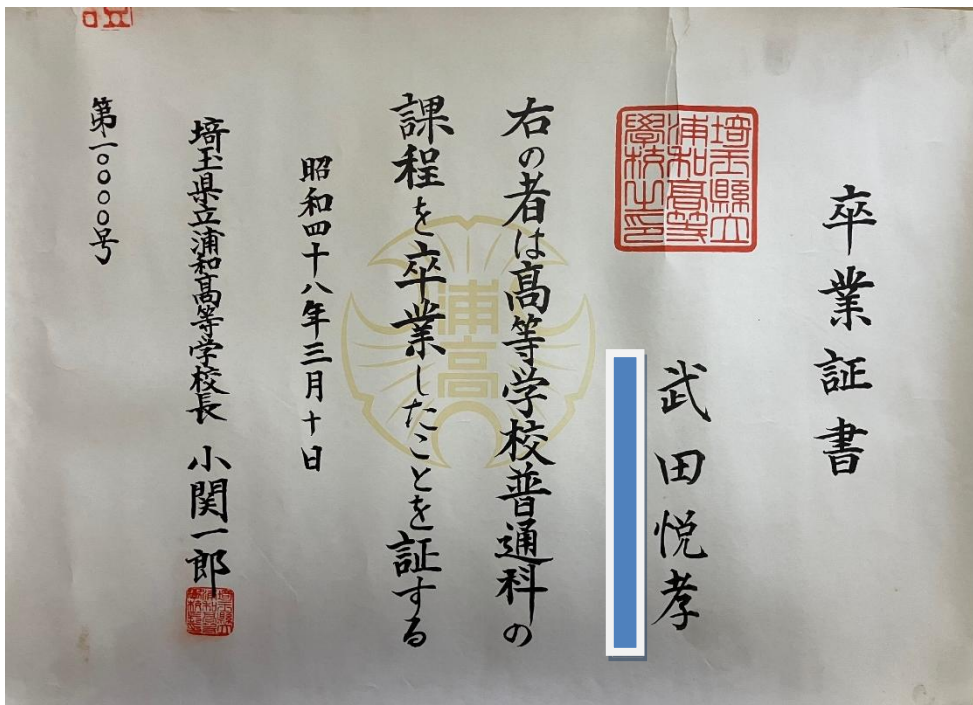 卒業証書
埼玉縣立
浦和高等
學校之印
武田悦孝
右の者は高等学校普通科の
課程を卒業したことを証する
浦高
昭和四十八年三月十日
埼玉県立浦和高等学校長 小関一郎
第一〇〇〇号